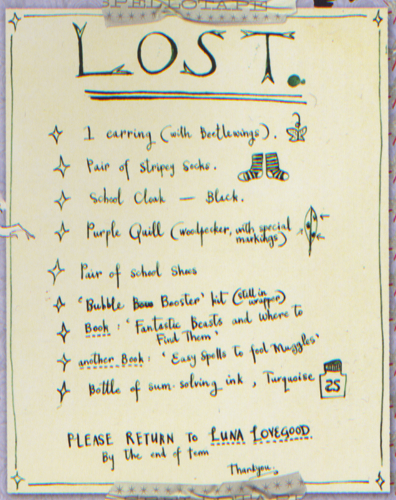 SPELLOTAPE
LOST.
1 earring (with Beetlewings).
Pair of Stripey Socks.
School Cloak — Black.
Purple Quill (woodpecker, with special
markings)
Pair of School Shoes
'Bubble Booster' kit (still in
wrapper)
Book : 'Fantastic Beasts and where to
Find Them'
another Book : 'Easy Spells to fool Muggles'
Bottle of sum-solving ink, Turquoise
25
PLEASE RETURN TO LUNA LOVEGOOD
By the end of term
Thankyou.